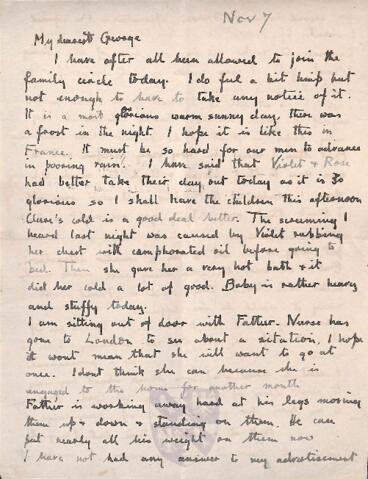 Nov 7
My dearest George
I have after all been allowed to join the
family circle today. I do feel a bit limp but
not enough to have to take any notice of it.
It is a most glorious warm sunny day, there was
a frost in the night. I hope it is like this in
France. It must be so hard for our men to advance
in pooring rain. I have said that Violet & Rose
had better take their day out today as it is so
glorious so I shall have the children this afternoon
Clare's cold is a good deal better. The screaming I
heard last night was caused by Violet rubbing
her chest with camphorated oil before going to
bed. Then she gave her a very hot bath & it
did her cold a lot of good. Baby is rather heavy
and stuffy today.
I am sitting out of door with Father. Nurse has
gone to London to see about a sitation, I hope
it wont mean that she will want to go at
once. I dont think she can because she is
engaged to this home for another month
Father is working away hard at his legs moving
them up & down & standing on them. He can
put nearly all his weight on them now
I have not had any answer to my advertisement